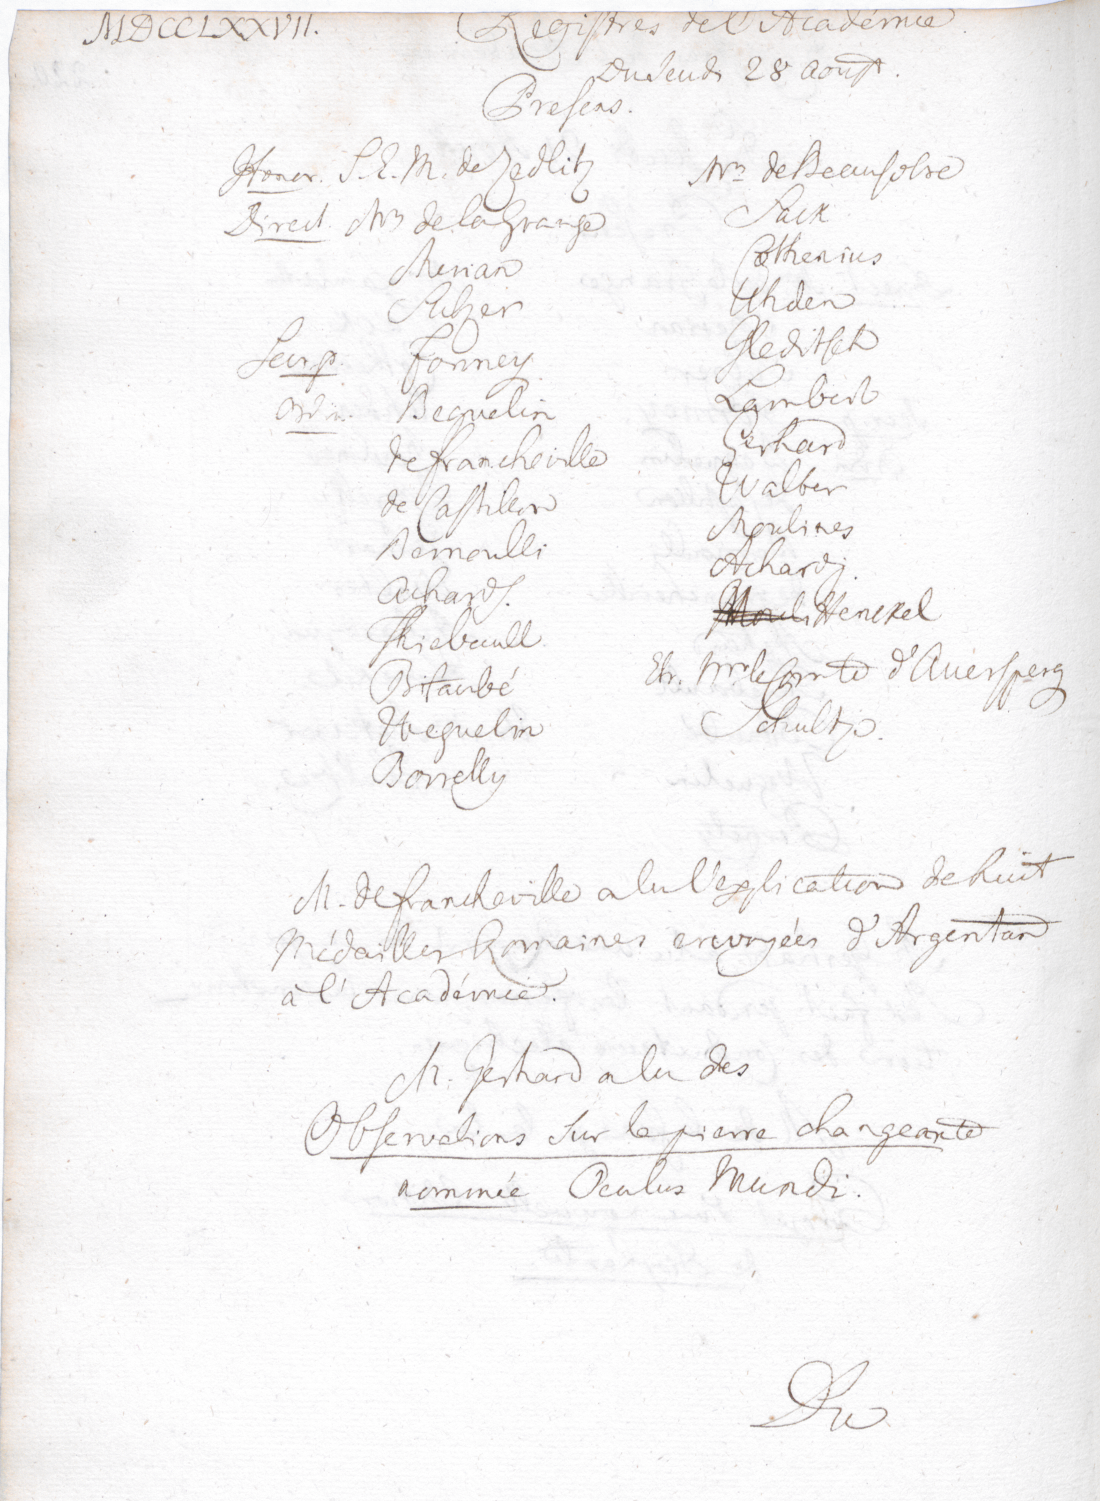 MDCCLXXVII.
Registres de l'Académie.
Du Jeudi 28 Aoust.
Presens.
Honor. S. E. M. de Zedlitz
Direct. Mrs de la Grange
Merian
Sulzer
Secr. p. Formey
Ordin. Beguelin
de Francheville
de Castillon
Bernoulli
Achard f.
Thiebault
Bitaubé
Weguelin
Borrelly
Mrs de Beausobre
Sack
Cothenius
Uhden
Gleditsch
Lambert
Gerhard
Walter
Moulines
Achard j.
Henckel
Etr. Mrs le Comte d'Auersperg
Schultz.
M. de Francheville a lu l'explication de huit
Médailles Romaines envoyées d'Argentan
à l'Académie.
M. Gerhard a lu des
Observations sur la pierre changeante
nommée Oculus Mundi.
Du